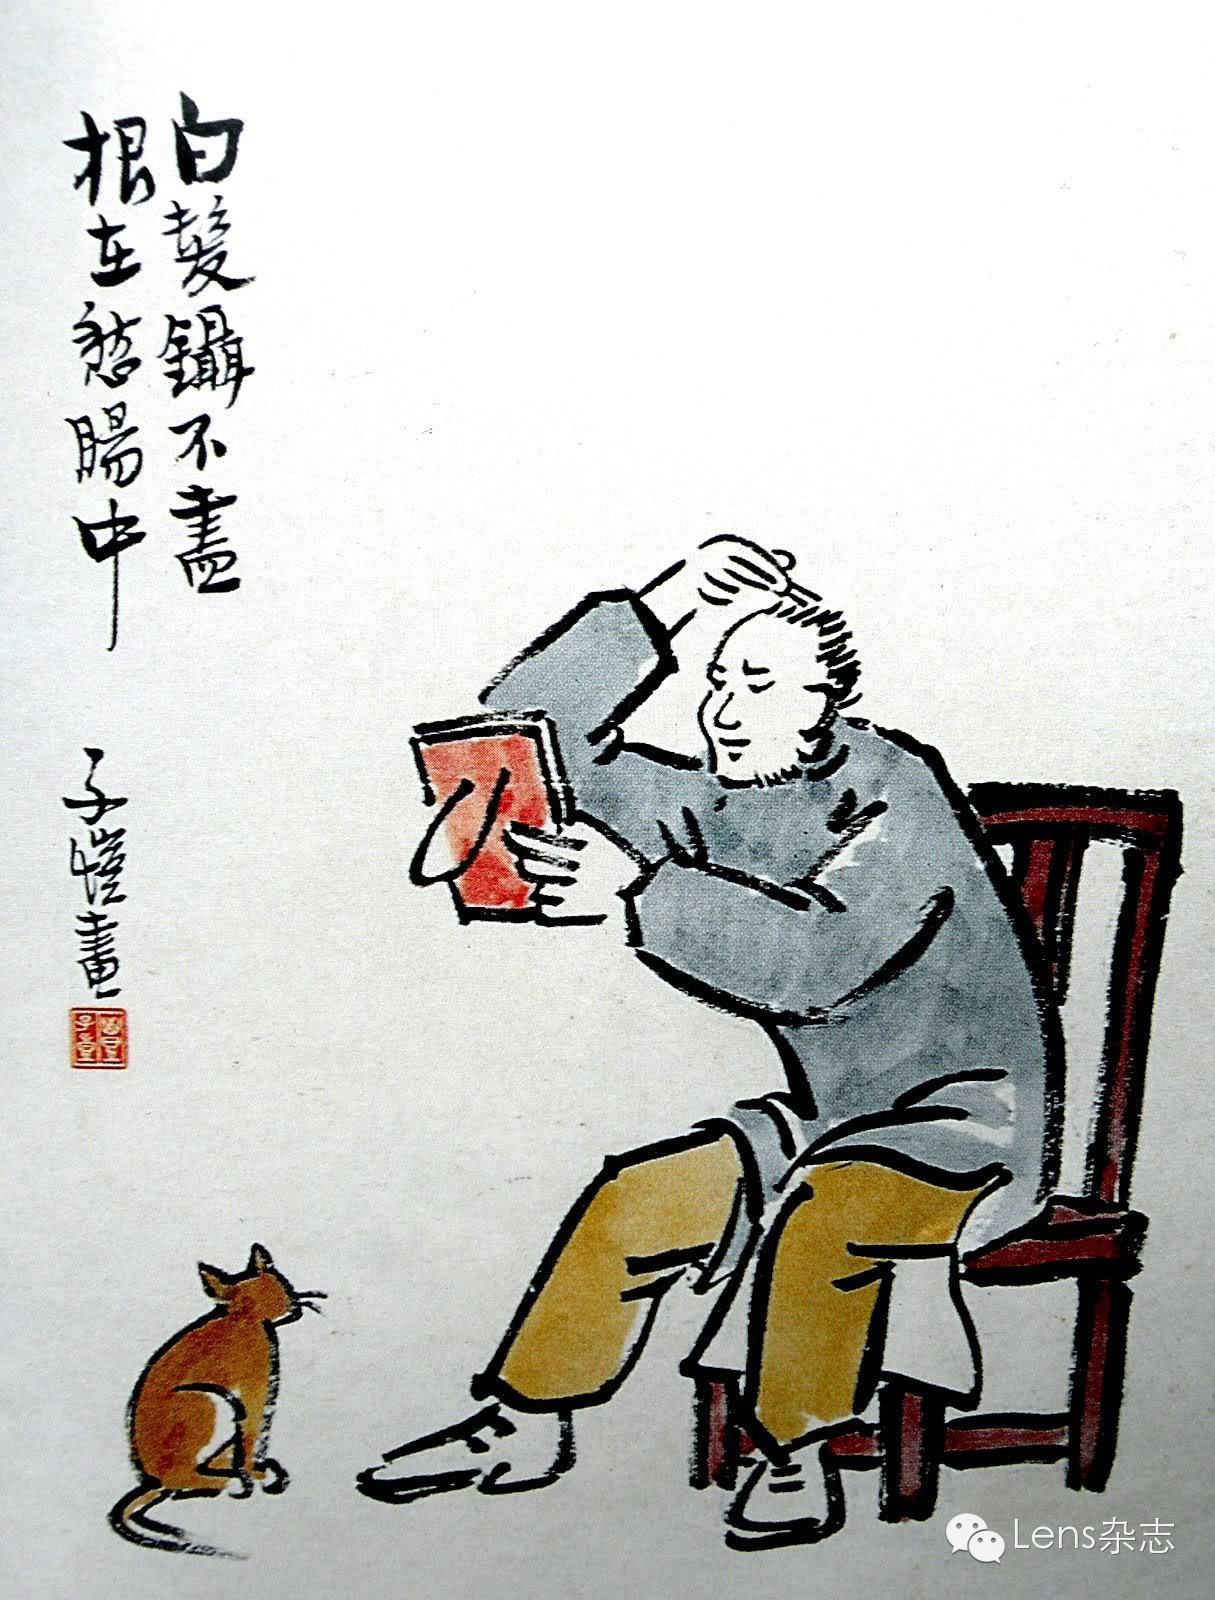 白髮鑷不盡
根在愁腸中
子愷畫
Lens杂志